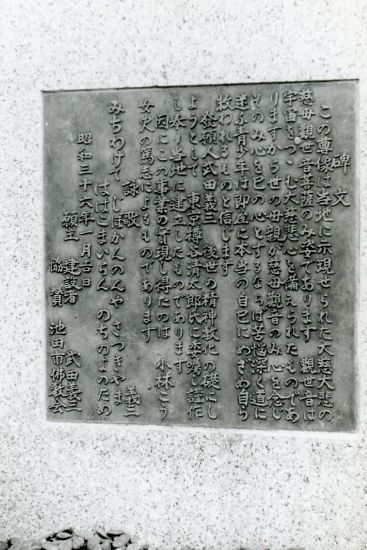 碑文
この尊像は当地に示現せられた大慈大悲の
慈母観世音菩薩のみ姿であります 観世音は
宇宙をつゝむ大慈悲心を備えられたものであ
りますから世の母親が慈母観音のみ心を念じ
そのみ心を己の心とするならば苦悩深く道に
迷う青少年は即座に本当の自己にめざめ自ら
救われるものと信じます
發願人武田義三 後世の精神教化の礎にし
ようとして 東京樽谷清太郎氏に委嘱し謹作
し奉り当地に建立したものであります
因にこの事業の實現し得たのは 小林こう
女史の篤志によるものであります
詠歌 義三
みちわけて じぼかんのんや さつきやま
ははばこまいらん のちのよのため
昭和三十六年一月吉日
建設者
願主 武田義三
協賛 池田市佛教会